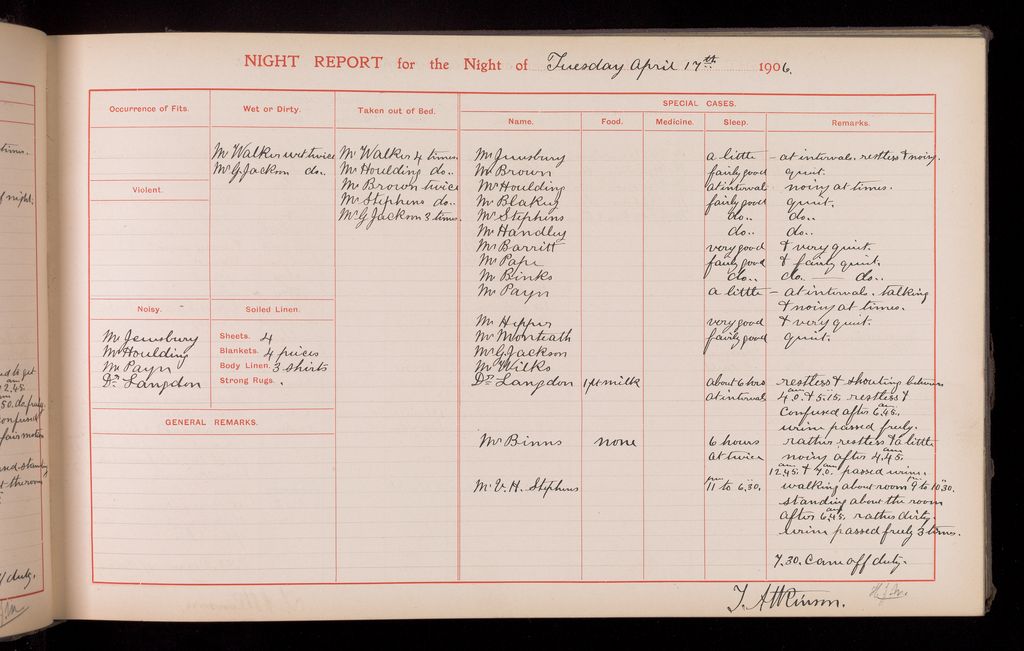 NIGHT REPORT for the Night of Tuesday April 17th 1906.
SPECIAL CASES.
Occurrence of Fits. Wet or Dirty. Taken out of Bed. Name. Food. Medicine. Sleep. Remarks.
Mr Walker wet twice Mr Walker 4 times Mr Jewsbury a little – at intervals. restless & noisy.
Mr G Jackson do.. Mr Houlding do.. Mr Brown fairly good quiet.
Violent. Mr Brown twice Mr Houlding at intervals noisy at times.
Mr Stephens do.. Mr Blakey fairly good quiet.
Mr G Jackson 3 times. Mr Stephens do.. do..
Mr Handley do.. do..
Mr Barritt very good & very quiet.
Mr Pape fairly good & fairly quiet.
Mr Binks do.. do. — do..
Mr Payn a little – at intervals. talking
& noisy at times.
Noisy. Soiled Linen. Mr Hepper very good & very quiet.
Mr Jewsbury Sheets. 4 Mr Monteath fairly good quiet.
Mr Houlding Blankets. 4 pieces Mr G Jackson
Mr Payn Body Linen. 3 shirts Mr Wilks
Dr Langdon Strong Rugs. . Dr Langdon 1 pt milk about 6 hrs restless & shouting between
at intervals 4.0. & 5.15. am restless &
Confused after 6.45. am
GENERAL REMARKS. urine passed freely.
Mr Binns none 6 hours rather restless & a little
at twice noisy after 4.45. am
12.45. am & 7.0. am passed urine.
Mr V. H. Stephens 11 pm to 6.30. walking about room 9 to 10.30. pm
standing about the room
after 6.45. am rather dirty.
urine passed freely 3 times.
7.30. Came off duty.
T. Atkinson.
times.
night.
12.45. am
confused
duty.